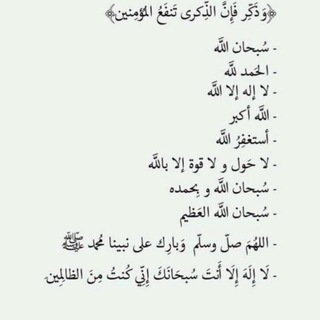 ﴿وَذَكِّر فَإِنَّ الذِّكرى تَنفَعُ المُؤمِنين﴾
- سُبحان اللَّه
- الحَمد للَّه
- لا إله إلا اللَّه
- اللَّه أكبر
- أستغفِرُ اللَّه
- لا حَول و لا قوة إلا باللَّه
- سُبحان اللَّه و بِحمده
- سُبحان اللَّه العَظيم
- اللهُمَ صلّ وسلّم وَبارِك على نبينا مُحمد ﷺ
- لَا إِلَهَ إِلَا أَنتَ سُبحَانَكَ إِنِّي كُنتُ مِنَ الظالِمِين.